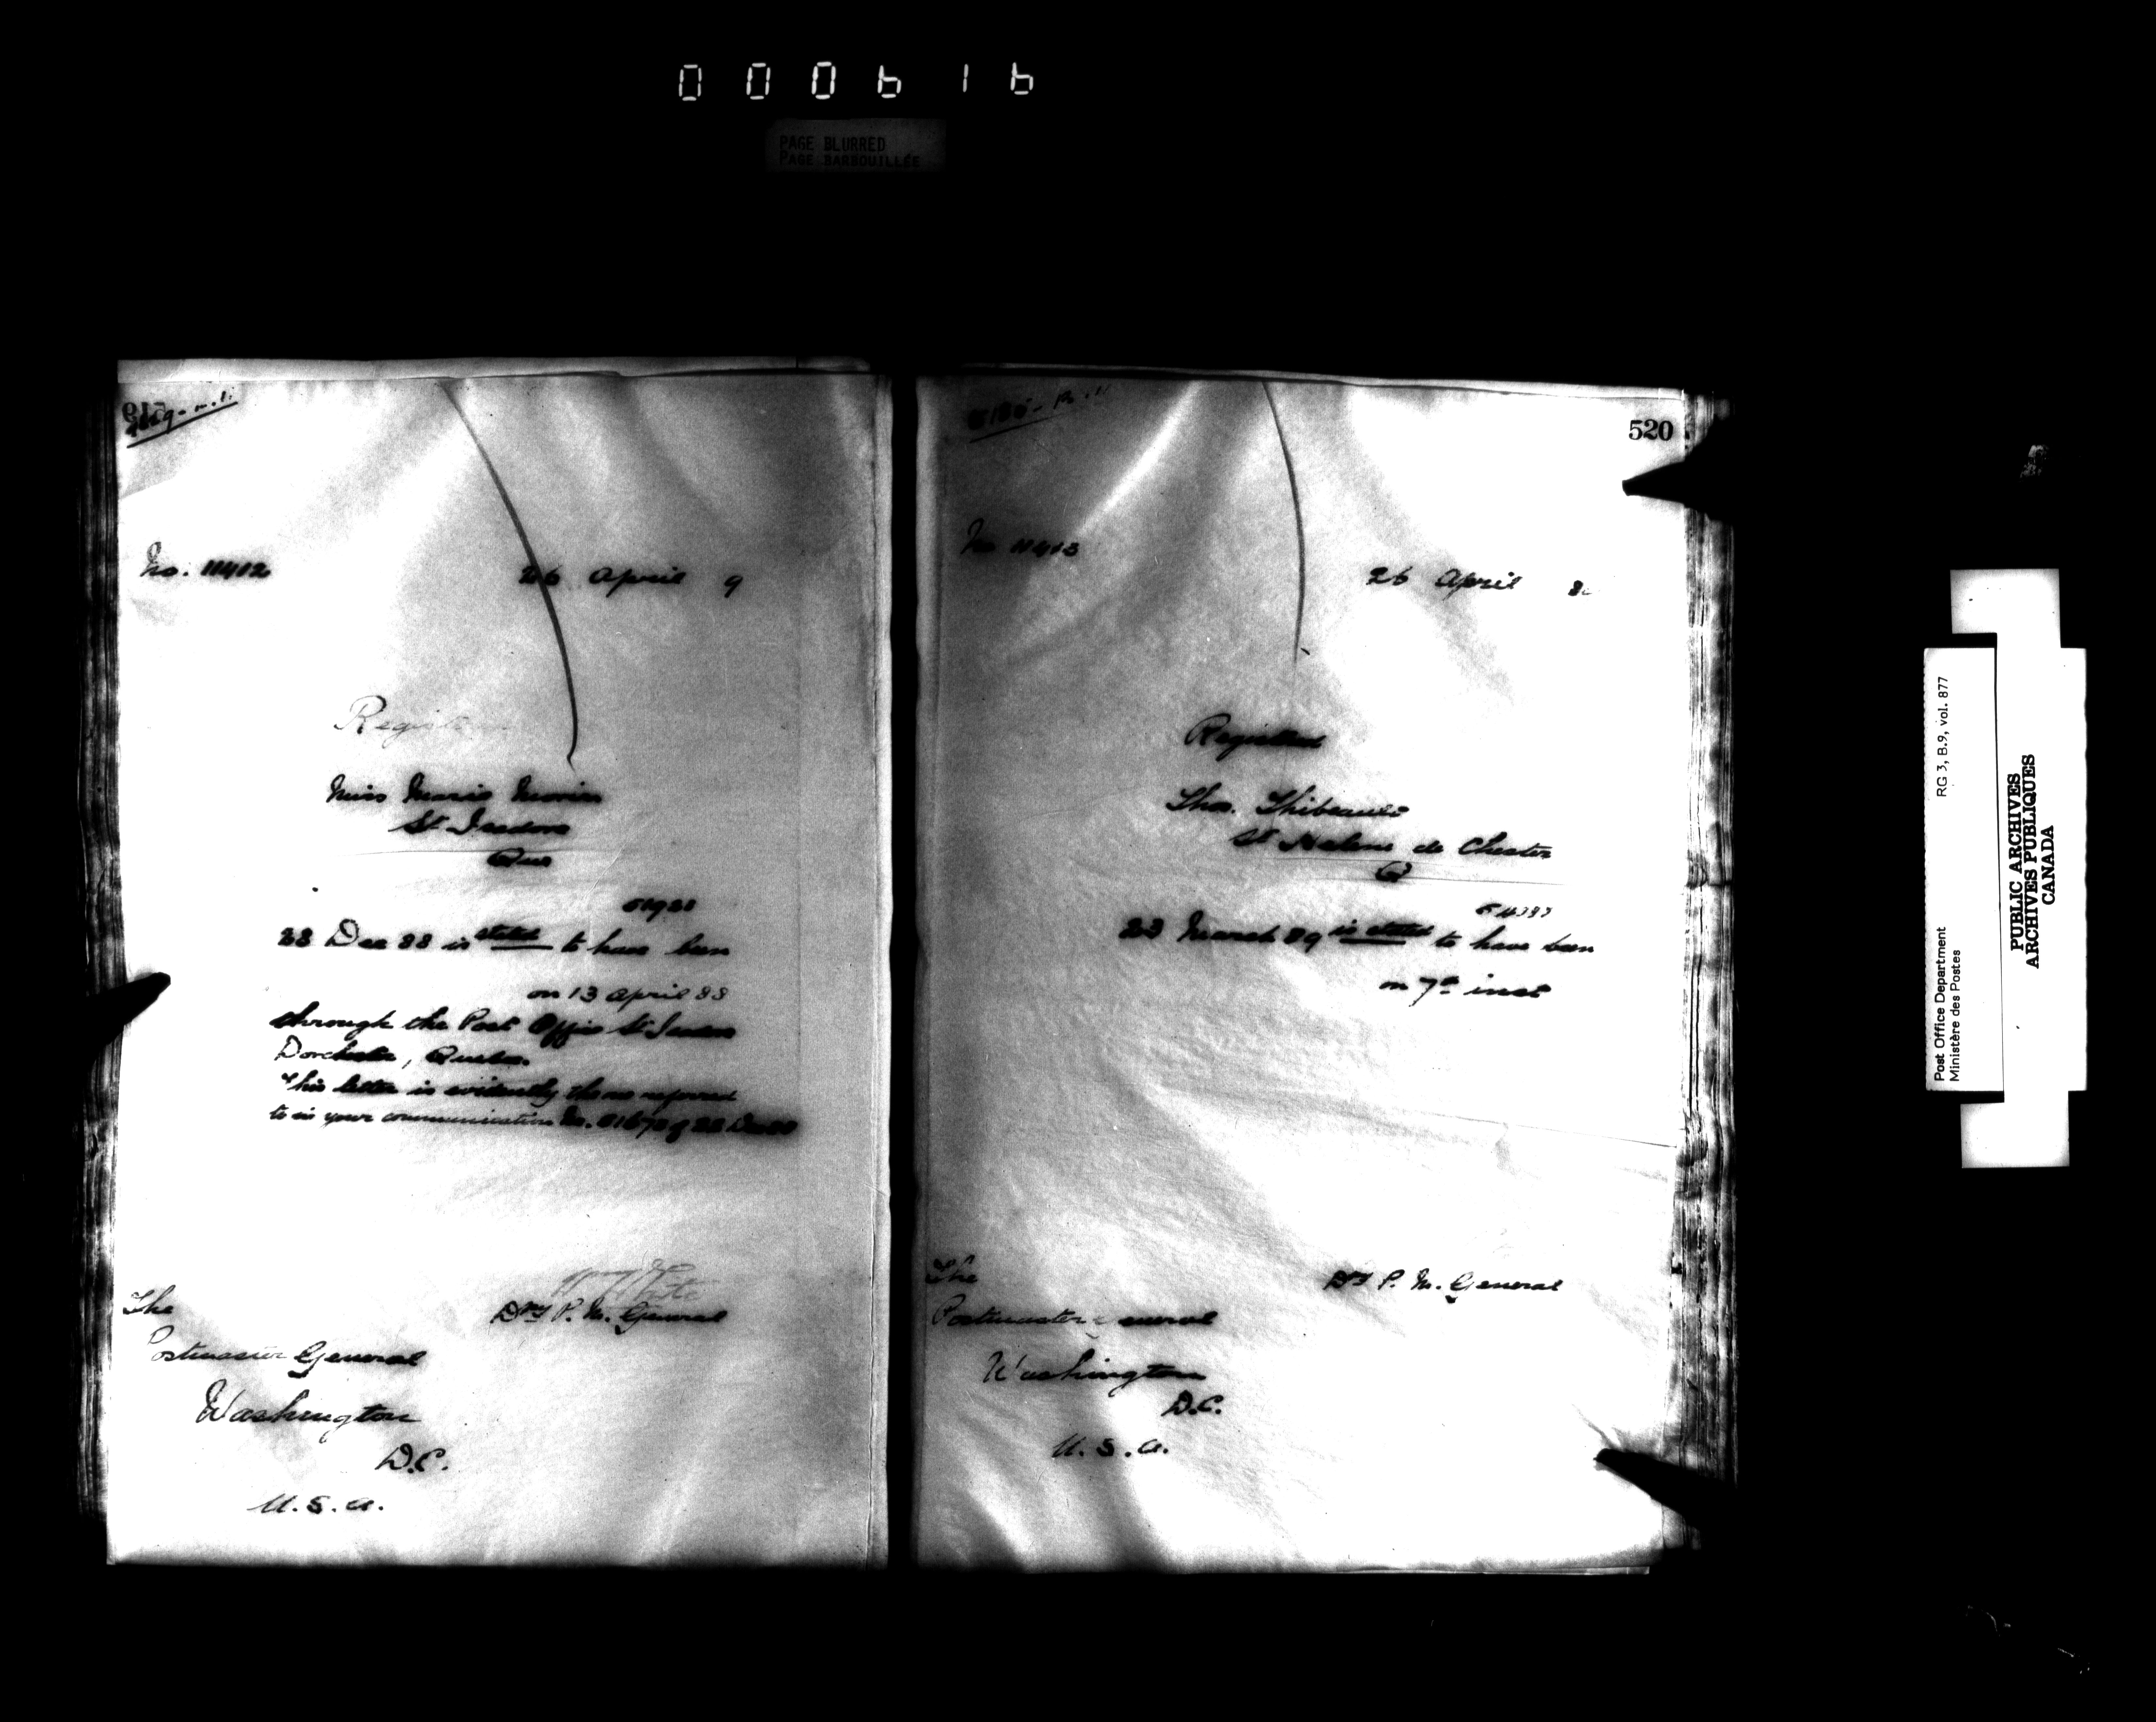 000616
PAGE BLURRED
PAGE BARBOUILLÉE
No. 11412
26 April 9
Miss
St Isadore
Que
28 Dec 88 is stated to have been
on 13 April 88
through the Post Office St Isadore
Dorchester, Quebec.
This letter is evidently the one referred
to in your communication No. of 28 Dec 88
Dy P. M. General
The
Postmaster General
Washington
D.C.
U.S.A.
520
No 11413
26 April
Registered
Thos. Thibeault
St Helene de Chester
Q
23 March 89 is stated to have been
on 7th inst
Dy P. M. General
The
Postmaster General
Washington
D.C.
U.S.A.
Post Office Department RG 3, B.9, vol. 877
Ministère des Postes
PUBLIC ARCHIVES
ARCHIVES PUBLIQUES
CANADA